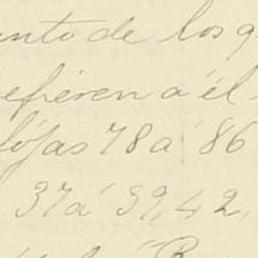 unto de los q
efiéren a él
fójas 78 a 86
37 á 39, 42,